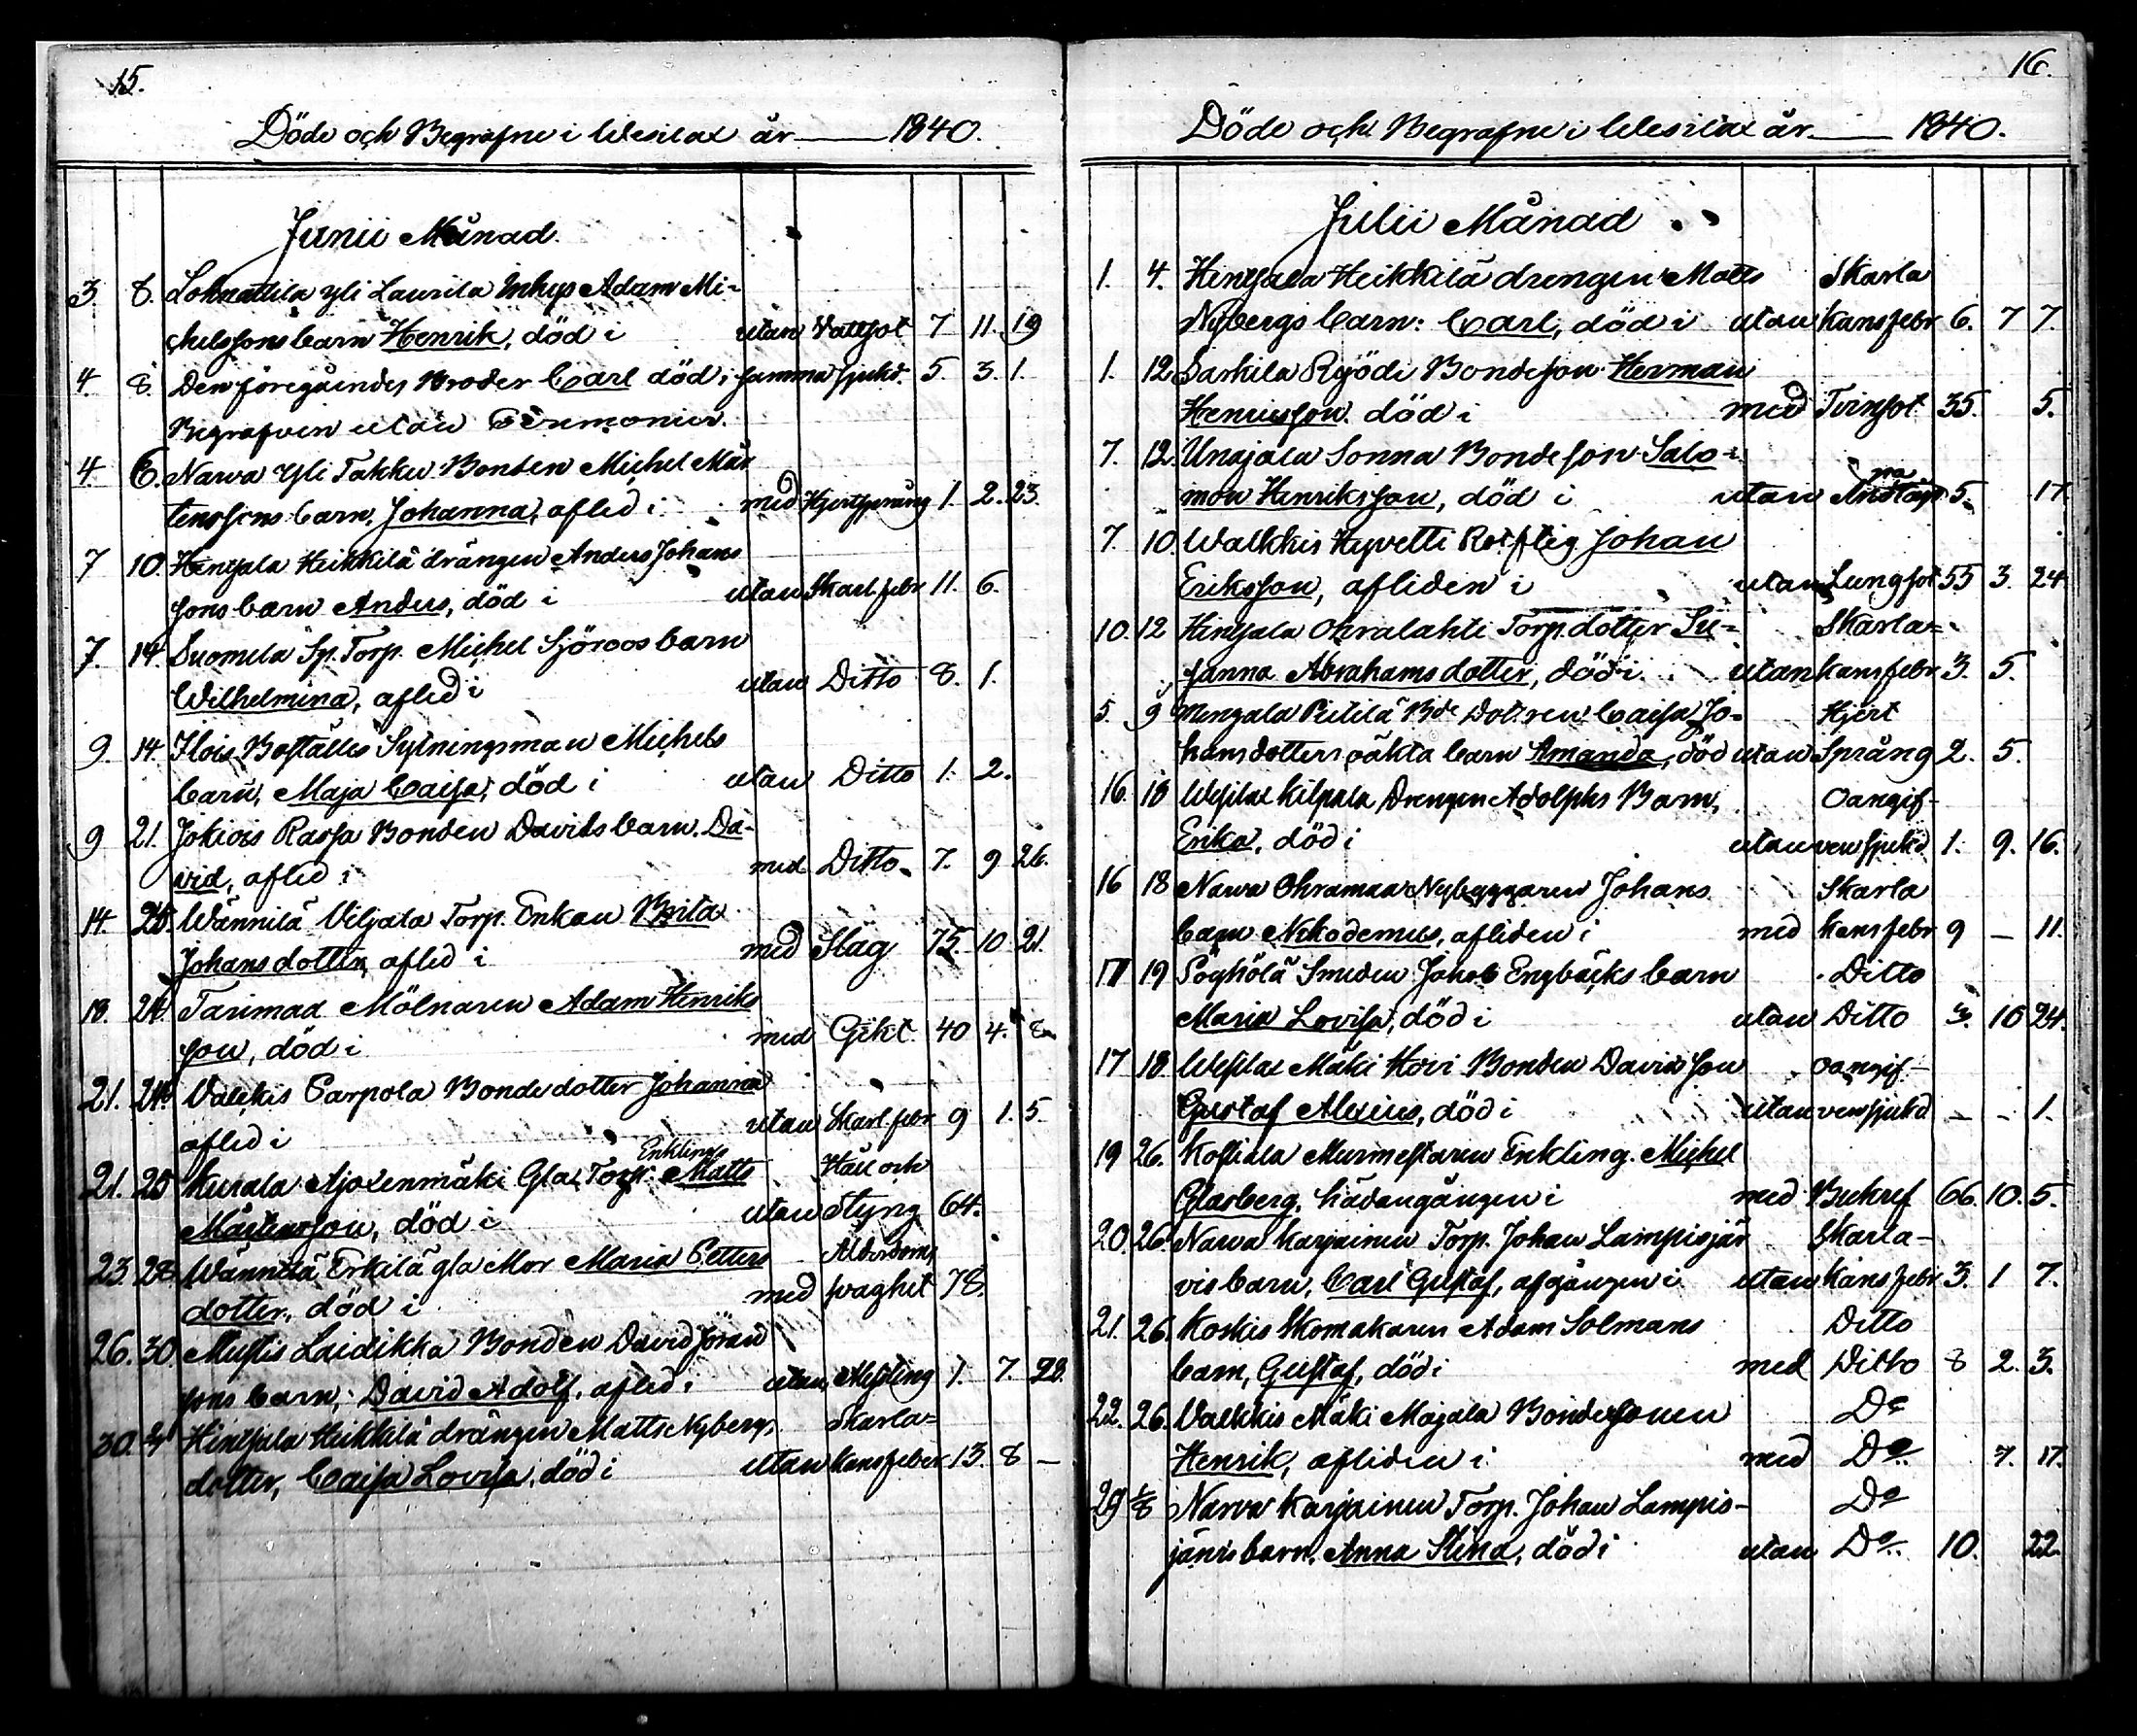 15.
Döde och Begrafne i Wesilax år 1840.
Junii Månad.
3. 8. Lohnattila Yli Laurila Inhys Adam Mi-
chelssons barn Henrik, död i utan Vattsot 7 11. 19
4. 8. Den föregåendes Broder Carl död i samma sjukd. 5. 3. 1.
Begrafven utan Ceremonier.
4 6. Narva Yli Takku Bonden Michel Mår
tenssons barn, Johanna, afled i med Hjertsprång 1. 2. 23.
7 10. Hinsala Heikkilä drängen Anders Johans
sons barn Anders, död i utan Skarl. febr 11. 6.
7. 14. Suomela Sp. Torp. Michel Sjöroos barn
Wilhelmina, afled i utan Ditto 8. 1.
9. 14. Ilois Boställes Sytningsman Michels
barn, Maja Caisa, död i utan Ditto 1. 2.
9 21. Jokiois Rassa Bonden Davids barn. Da-
vid, afled i med Ditto. 7. 9 26.
14. 25. Wännilä Viljala Torp. Enkan Brita
Johansdotter, afled i med Slag 75. 10. 21.
18. 24. Tarimaa Mölnaren Adam Henriks
son, död i med Gikt. 40 4. 8
21. 24. Valkkis Parpola Bondedotter Johanna
afled i utan Skarl. febr 9 1. 5.
21. 25 Kurala Ajoxenmäki Gla Torp. Enklings Matts Håll och
Mårtensson, död i utan Styng 64.
23. 28 Wännilä Erkilä gla Mor Maria Petters Alderdoms
dotter, död i med svaghet 78.
26. 30. Mustis Laidikka Bonden David Göran
sons barn, David Adolf, afled i utan Mesling 1. 7. 28.
30. Hinsala Heikkilä drängen Matts Nybergs Skarla=
dotter, Caisa Lovisa, död i utan kansfeber 13. 8 —
16.
Döde och Begrafne i Wesilax år 1840.
Julii Månad
1. 4. Hinsala Heikkilä drengen Matts Skarla
Nybergs barn: Carl, död i utan kansfebr 6. 7 7.
1. 12. Sarkila Ryödi Bondeson Herman
Henricsson. död i med Tvinsot 35. 5.
7. 12. Unajala Sonna Bondeson Salo-
mon Henriksson, död i utan 5. 17
7. 10. Walkkis Hyvetti Rotfttig Johan
Eriksson, afliden i utan Lungsot 55 3. 24.
10. 12 Hinsala Ohralahti Torp. dotter Su= Skarla=
sanna Abrahamsdotter, död i utan kansfebr 3. 5.
5. 9 Mengala Pietilä Bde Dotren Caisa Jo- Hjert
hansdotters oäkta barn Amanda, död utan Språng 2. 5.
16. 18 Wesilax Kilpala Drengen Adolphs Barn, Oangif-
Erika, död i utan ven sjukd. 1. 9. 16.
16 18 Narva Ohramaa Nybyggaren Johans Skarla
barn Nikodemus, afliden i med kansfebr 9 — 11.
17 19 Pöyhölä Smeden Jakob Engbäcks barn Ditto
Maria Lovisa, död i utan Ditto 3. 10 24.
17 18. Wesilax Mäki Hovi Bonden Davids son oangif-
Gustaf Alexius, död i utan ven sjukd — - 1.
19 26. Kostiala Murmestaren Enkling. Michel
Glasberg, hädangången i med Bukref 66. 10. 5.
20. 26. Narva Karjainen Torp. Johan Lampisjär Skarla-
vis barn, Carl Gustaf, afgången i utan kansfebr. 3. 1 7.
21. 26. Koskis Skomakaren Adam Solmans Ditto
barn, Gustaf, död i med Ditto 8 2. 3.
22. 26. Valkkis Mäki Majala Bondesonen Do
Henrik, afliden i med Do 7. 17.
29 2/8 Narva Karjainen Torp. Johan Lampis- Do
järvis barn, Anna Stina, död i utan Do. 10. 22.